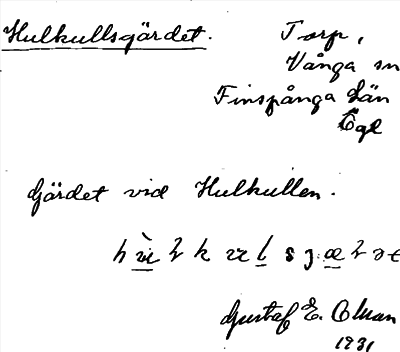 Hulkullsgärdet. Torp,
Vånga sn
Finspånga län
Ögl
Gärdet vid Hulkullen.
Gustaf E. Olman
1931